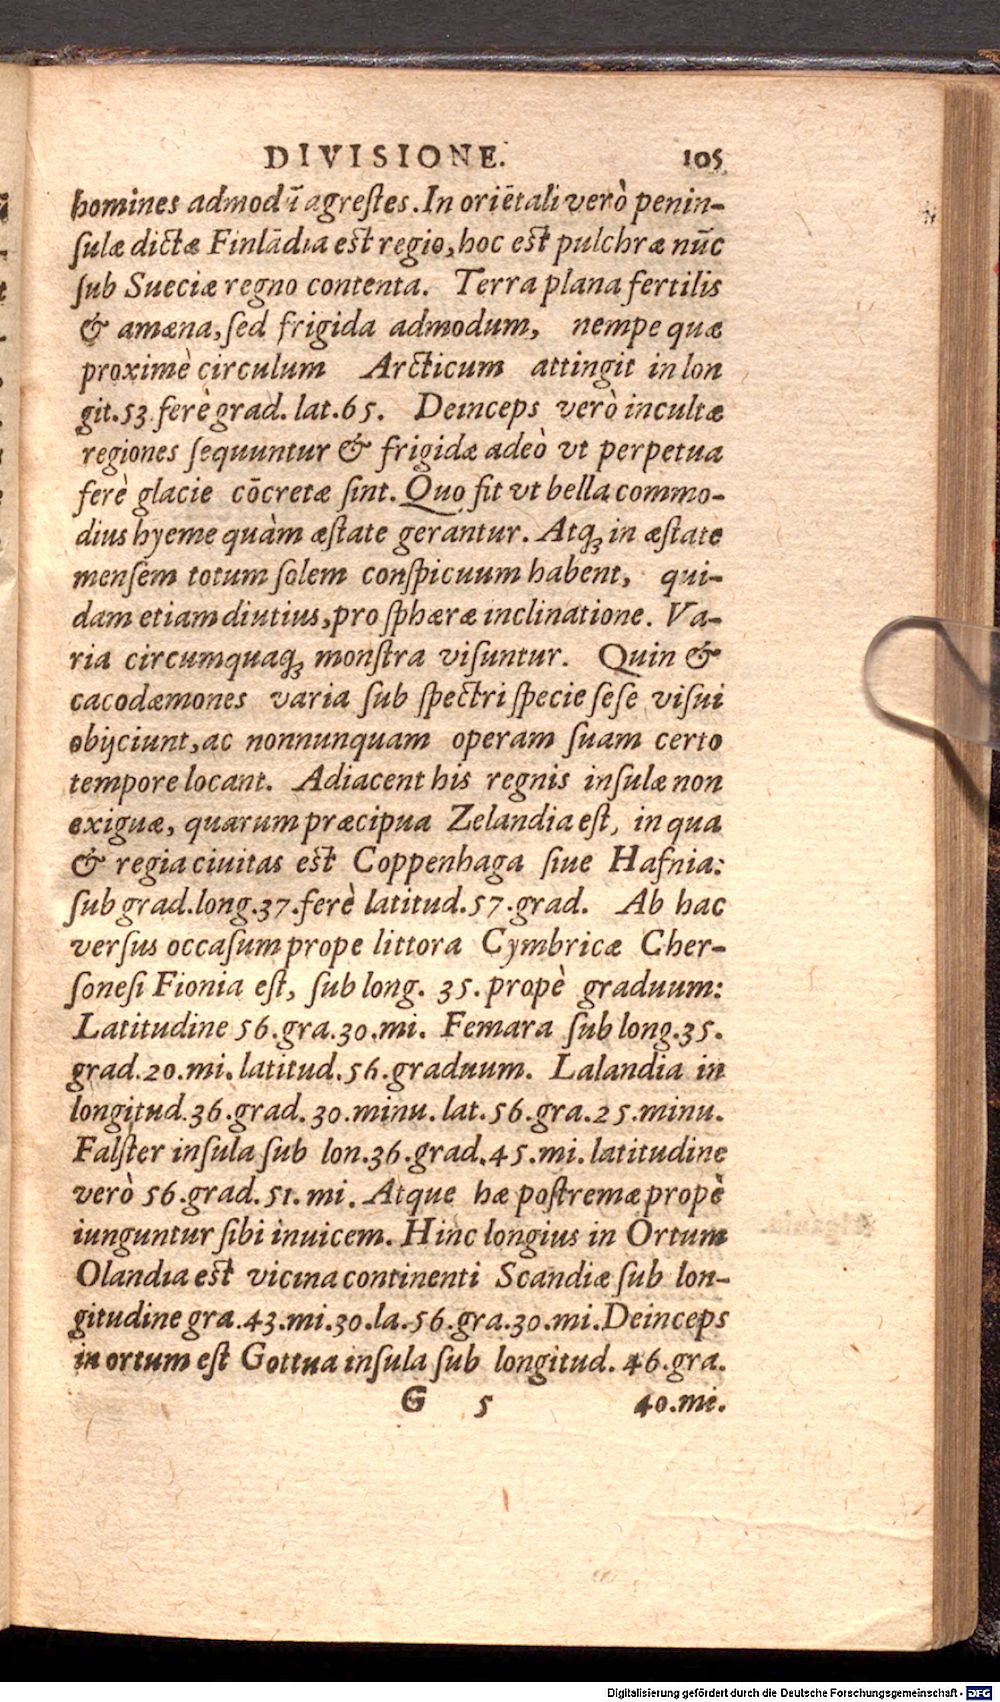 DIVISIONE. 105
homines admodū agreſtes. In oriētali verò penin-
ſulæ dictæ Finlādia eſt regio, hoc eſt pulchræ nūc
ſub Sueciæ regno contenta. Terra plana fertilis
& amæna, ſed frigida admodum, nempe quæ
proximè circulum Arcticum attingit in lon
git. 53. ferè grad. lat. 65. Deinceps verò incultæ
regiones ſequuntur & frigidæ adeò vt perpetua
ferè glacie cōcretæ ſint. Quo fit vt bella commo-
dius hyeme quàm æſtate gerantur. Atq; in æſtate
menſem totum ſolem conſpicuum habent, qui-
dam etiam diutius, pro ſphæræ inclinatione. Va-
ria circumquaq; monſtra viſuntur. Quin &
cacodæmones varia ſub ſpectri ſpecie ſeſe viſui
obijciunt, ac nonnunquam operam ſuam certo
tempore locant. Adiacent his regnis inſulæ non
exiguæ, quarum præcipua Zelandia eſt, in qua
& regia ciuitas eſt Coppenhaga ſiue Hafnia:
ſub grad. long. 37. ferè latitud. 57. grad. Ab hac
verſus occaſum prope littora Cymbricæ Cher-
ſoneſi Fionia eſt, ſub long. 35. propè graduum:
Latitudine 56. gra. 30. mi. Femara ſub long. 35.
grad. 20. mi. latitud. 56. graduum. Lalandia in
longitud. 36. grad. 30. minu. lat. 56. gra. 25. minu.
Falſter inſula ſub lon. 36. grad. 45. mi. latitudine
verò 56. grad. 51. mi. Atque hæ poſtremæ propè
iunguntur ſibi inuicem. Hinc longius in Ortum
Olandia eſt vicina continenti Scandiæ ſub lon-
gitudine gra. 43. mi. 30. la. 56. gra. 30. mi. Deinceps
in ortum eſt Gottua inſula ſub longitud. 46. gra.
G 5 40. mi.
Digitalisierung gefördert durch die Deutsche Forschungsgemeinschaft - DFG